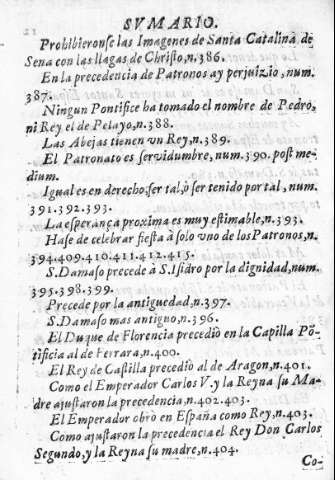 SVMARIO.
Prohibieronſe las Imagenes de Santa Catalina de
Sena con las llagas de Chriſto, n.386.
En la precedencia de Patronos ay perjuizio, num.
387.
Ningun Pontifice ha tomado el nombre de Pedro,
ni Rey el de Pelayo, n.388.
Las Abejas tienen vn Rey, n.389.
El Patronato es ſervidumbre, num.390. poſt me-
dium.
Igual es en derecho, ſer tal, ò ſer tenido por tal, num.
391.392.393.
La eſperança proxima es muy eſtimable, n.393.
Haſe de celebrar fieſta à ſolo vno de los Patronos, n.
394.409.410.411.412.413.
S.Damaſo precede à S.Iſidro por la dignidad, num.
395.398.399.
Precede por la antiguedad, n.397.
S.Damaſo mas antiguo, n.396.
El Duque de Florencia precediò en la Capilla Põ-
tificia al de Ferrara, n.400.
El Rey de Caſtilla precediò al de Aragon, n.401.
Como el Emperador Carlos V. y la Reyna ſu Ma-
dre ajuſtaron la precedencia, n.402.403.
El Emperador obrò en Eſpaña como Rey, n.403.
Como ajuſtaron la precedencia el Rey Don Carlos
Segundo, y la Reyna ſu madre, n.404.
Co-